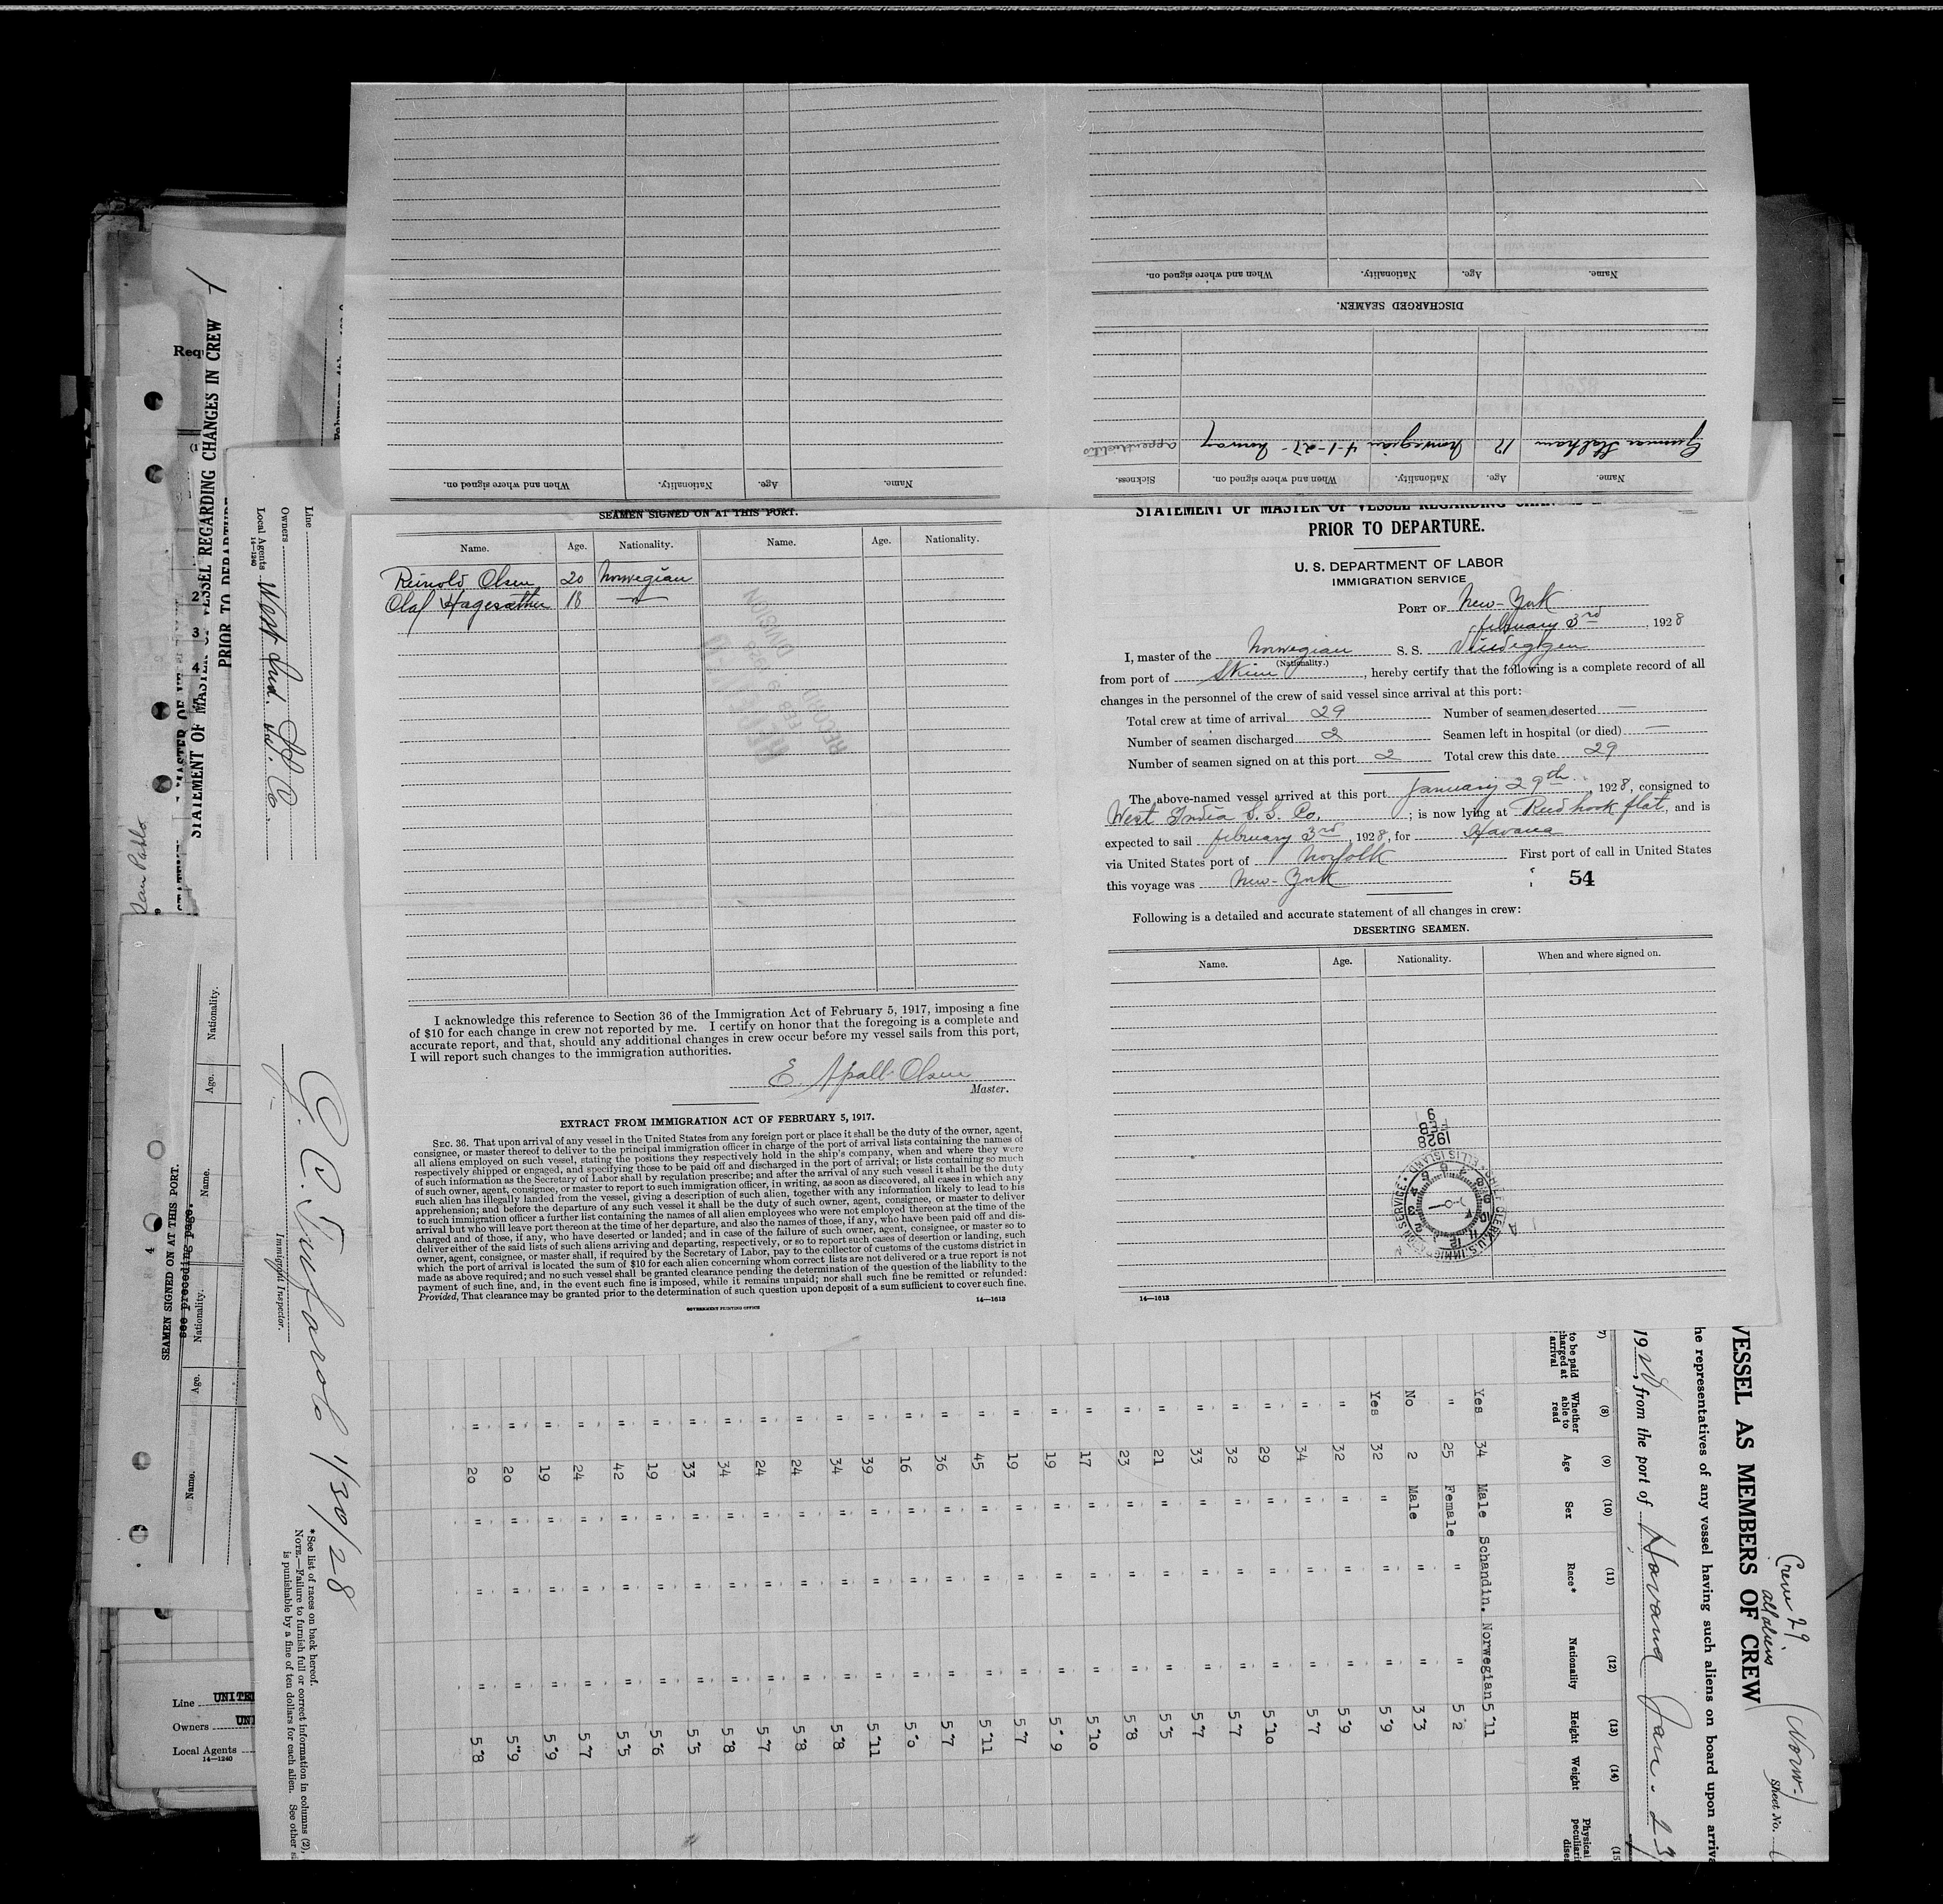 Name.
Age.
Nationality.
When and where signed on.
DISCHARGED SEAMEN.
Gunnar
Norwegian 4-1-27 - Norway
Name.
Age.
Nationality.
When and where signed on.
Sickness.
Name.
Age.
Nationality.
When and where signed on.
SEAMEN SIGNED ON AT THIS PORT.
Name. Age. Nationality. Name. Age. Nationality.
Reinold Olsen 20 Norwegian
Olaf Hagesæther 18 "
I acknowledge this reference to Section 36 of the Immigration Act of February 5, 1917, imposing a fine
of $10 for each change in crew not reported by me. I certify on honor that the foregoing is a complete and
accurate report, and that, should any additional changes in crew occur before my vessel sails from this port,
I will report such changes to the immigration authorities.
E. Olsen
Master.
EXTRACT FROM IMMIGRATION ACT OF FEBRUARY 5, 1917.
SEC. 36. That upon arrival of any vessel in the United States from any foreign port or place it shall be the duty of the owner, agent,
consignee, or master thereof to deliver to the principal immigration officer in charge of the port of arrival lists containing the names of
all aliens employed on such vessel, stating the positions they respectively hold in the ship's company, when and where they were
respectively shipped or engaged, and specifying those to be paid off and discharged in the port of arrival; or lists containing so much
of such information as the Secretary of Labor shall by regulation prescribe; and after the arrival of any such vessel it shall be the duty
of such owner, agent, consignee, or master to report to such immigration officer, in writing, as soon as discovered, all cases in which any
such alien has illegally landed from the vessel, giving a description of such alien, together with any information likely to lead to his
apprehension; and before the departure of any such vessel it shall be the duty of such owner, agent, consignee, or master to deliver
to such immigration officer a further list containing the names of all alien employees who were not employed thereon at the time of the
arrival but who will leave port thereon at the time of her departure, and also the names of those, if any, who have been paid off and dis-
charged and of those, if any, who have deserted or landed; and in case of the failure of such owner, agent, consignee, or master so to
deliver either of the said lists of such aliens arriving and departing, respectively, or so to report such cases of desertion or landing, such
owner, agent, consignee, or master shall, if required by the Secretary of Labor, pay to the collector of customs of the customs district in
which the port of arrival is located the sum of $10 for each alien concerning whom correct lists are not delivered or a true report is not
made as above required; and no such vessel shall be granted clearance pending the determination of the question of the liability to the
payment of such fine, and, in the event such fine is imposed, while it remains unpaid; nor shall such fine be remitted or refunded:
Provided, That clearance may be granted prior to the determination of such question upon deposit of a sum sufficient to cover such fine.
GOVERNMENT PRINTING OFFICE
14—1613
STATEMENT OF MASTER OF VESSEL REGARDING
PRIOR TO DEPARTURE.
U. S. DEPARTMENT OF LABOR
IMMIGRATION SERVICE
PORT OF New-York
february 3rd, 1928
I, master of the Norwegian S. S.
(Nationality.)
from port of Skien, hereby certify that the following is a complete record of all
changes in the personnel of the crew of said vessel since arrival at this port:
Total crew at time of arrival 29 Number of seamen deserted —
Number of seamen discharged 2 Seamen left in hospital (or died) —
Number of seamen signed on at this port 2 Total crew this date 29
The above-named vessel arrived at this port January 29th, 1928, consigned to
West India S. S. Co. ; is now lying at Red hook flat, and is
expected to sail february 3rd, 1928, for Havana
via United States port of Norfolk First port of call in United States
this voyage was New-York 54
Following is a detailed and accurate statement of all changes in crew:
DESERTING SEAMEN.
Name. Age. Nationality. When and where signed on.
1928
14—1613
STATEMENT OF MASTER OF VESSEL REGARDING CHANGES IN CREW
PRIOR TO DEPARTURE
San Pablo
Line
Owners
Local Agents West Ind. S. S. Co.
14—1240
1/30/28
Immigrant Inspector.
*See list of races on back hereof.
NOTE.—Failure to furnish full or correct information in columns (2),
is punishable by a fine of ten dollars for each alien. See other
SEAMEN SIGNED ON AT THIS PORT.
see preceding page.
Name. Age. Nationality. Name. Age. Nationality.
Line UNITE
Owners UN
Local Agents
14—1240
VESSEL AS MEMBERS OF CREW
Crew 29
all aliens
(Norw.)
Sheet No.
he representatives of any vessel having such aliens on board upon arriva
1928, from the port of Havana Jan. 23
(8) (9) (10) (11) (12) (13) (14)
Whether able to read Age Sex Race* Nationality Height Weight
Yes 34 Male Schandin. Norwegian 5 11
" 25 Female " " 5 2
No 2 Male " " 3 3
Yes 32 " " " 5 9
" 32 " " " 5 9
" 34 " " " 5 7
" 29 " " " 5 10
" 32 " " " 5 7
" 33 " " " 5 7
" 21 " " " 5 5
" 23 " " " 5 8
" 17 " " " 5 10
" 19 " " " 5 9
" 19 " " " 5 7
" 45 " " " 5 11
" 36 " " " 5 7
" 16 " " " 5 0
" 39 " " " 5 11
" 34 " " " 5 8
" 24 " " " 5 8
" 24 " " " 5 7
" 34 " " " 5 8
" 33 " " " 5 5
" 19 " " " 5 6
" 42 " " " 5 5
" 24 " " " 5 7
" 19 " " " 5 9
" 20 " " " 5 9
" 20 " " " 5 8